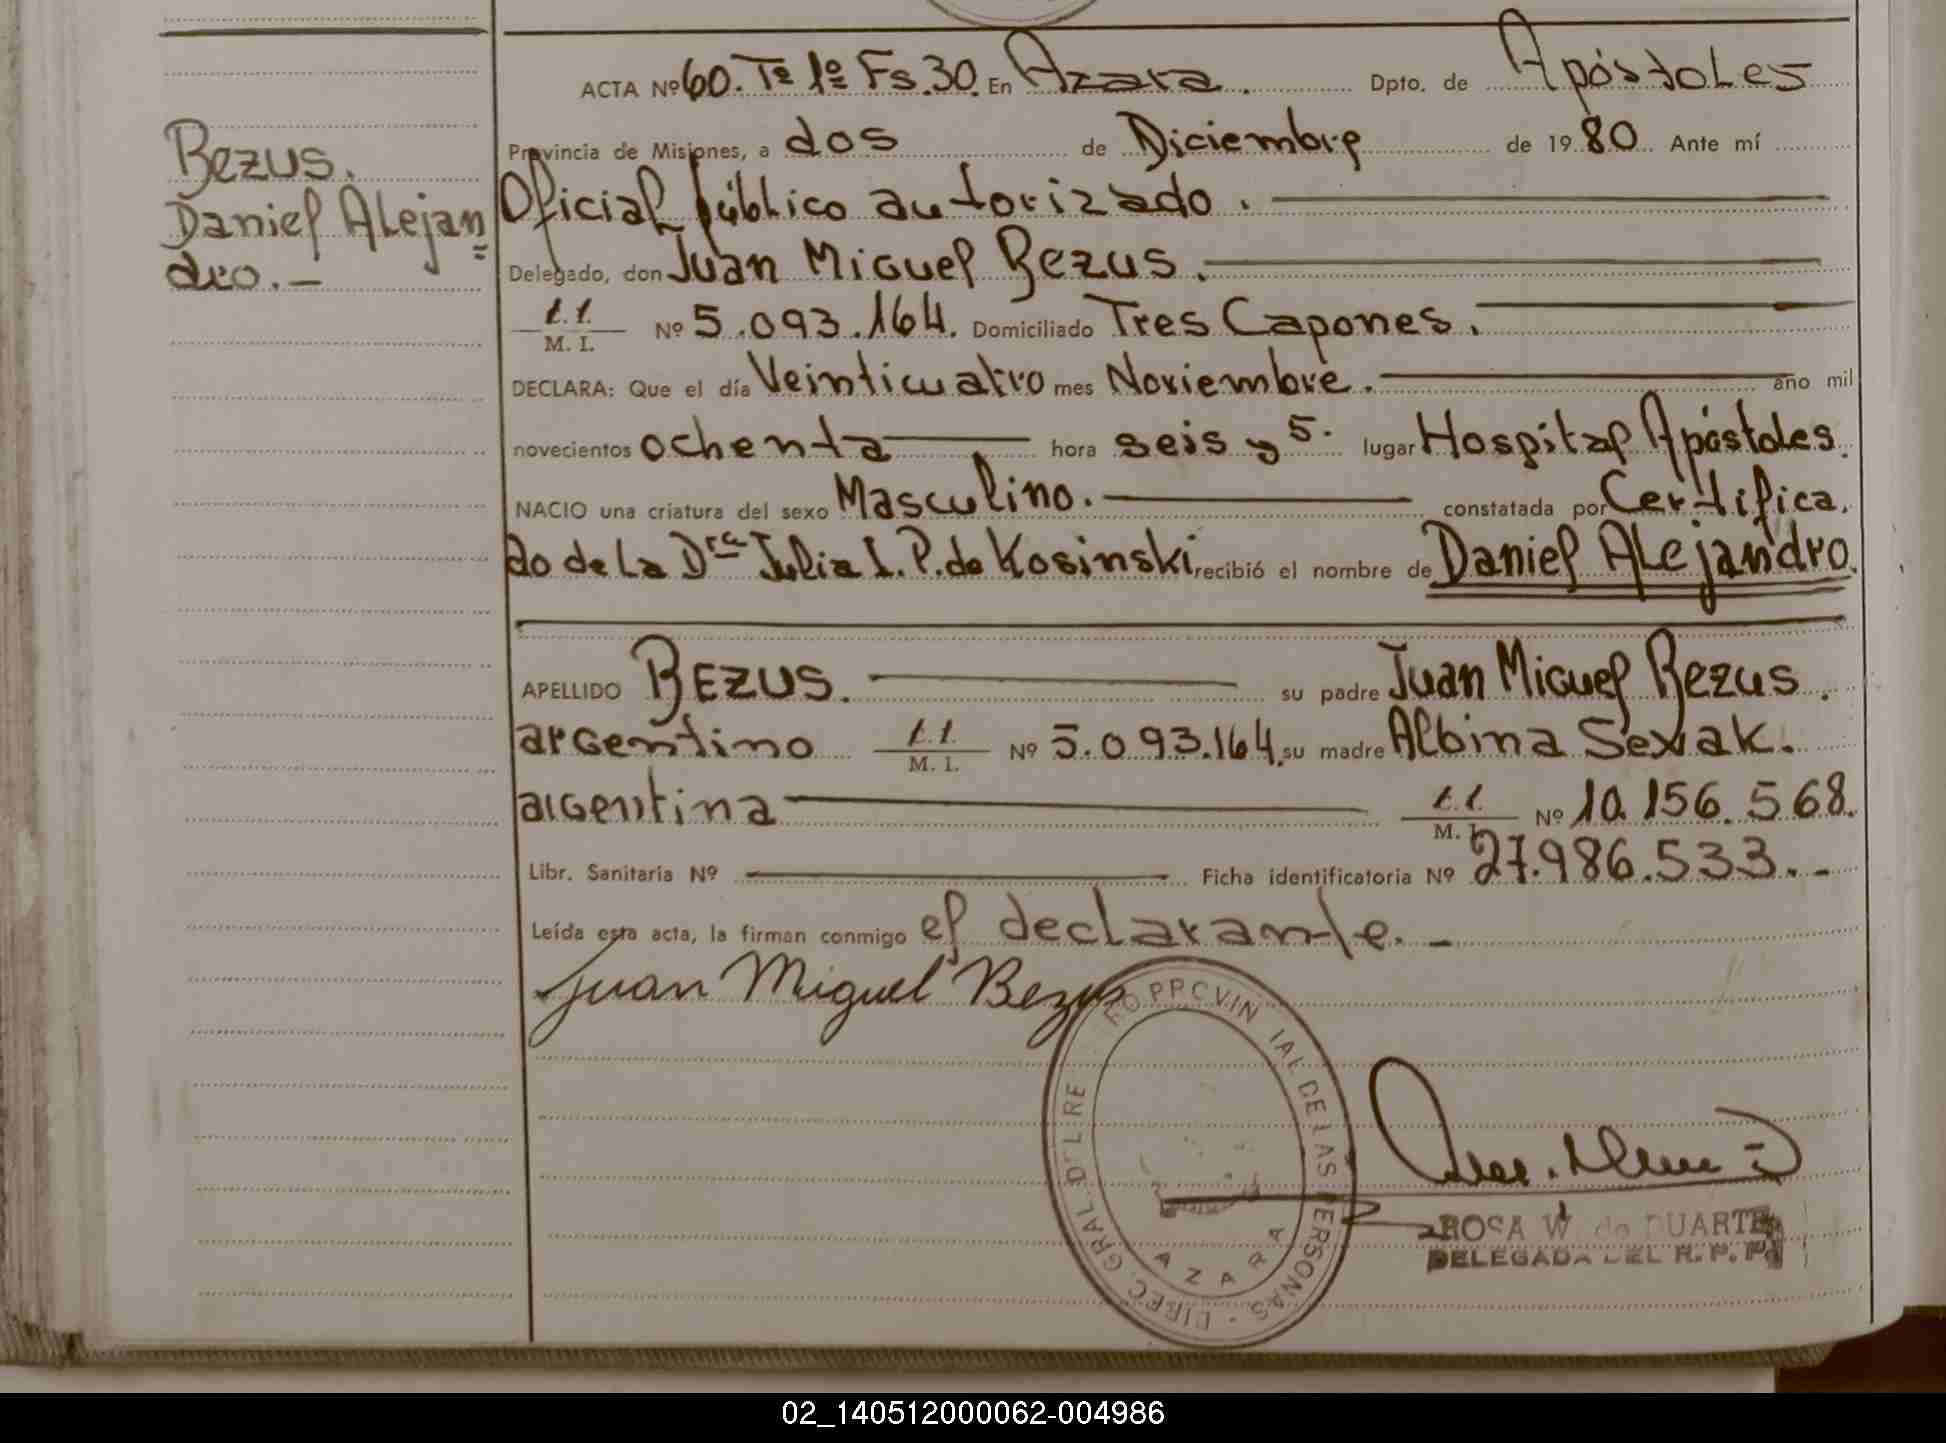 Bezus.
Daniel Alejan
dro.-
ACTA Nº 60. Tº 1º Fs. 30. En Azara. Dpto. de Apóstoles
Provincia de Misiones, a dos de Diciembre de 1980 Ante mí
Oficial público autorizado.
Delegado, don Juan Miguel Bezus.
M. I. Nº 5.093.164. Domiciliado Tres Capones.
DECLARA: Que el día Veinticuatro mes Noviembre. año mil
novecientos ochenta hora seis y 5. lugar Hospital Apóstoles.
NACIO una criatura del sexo Masculino. constatada por Certifica.
do de la Dra Julia I. P. de Kosinski recibió el nombre de Daniel Alejandro.
APELLIDO BEZUS. su padre Juan Miguel Bezus.
argentino M. I. Nº 5.093.164. su madre Albina Sexak.
argentina M. I. Nº 10.156.568.
Libr. Sanitaría Nº Ficha identificatoria Nº 27.986.533.-
Leída esta acta, la firman conmigo el declarante.-
Juan Miguel Bezus
DIREC. GRAL. DEL RE PROVINCIAL DE LAS PERSONAS
AZARA
ROSA W. de DUARTE
DELEGADA DEL R. P. P.
02_140512000062-004986